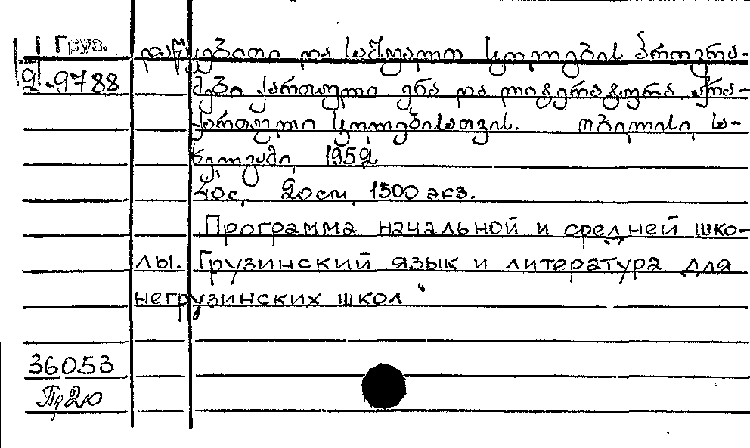 Груз. დაწყებითი და საშუალო სკოლების პროგრა-
2-9788 მები ქართული ენა და ლიტერატურა არა-
ქართული სკოლებისათვის. თბილისი, სა-
1952
40с. 20см. 1500 экз.
Программа начальной и средней шко-
лы. Грузинский язык и литература для
негрузинских школ
36053
Пр20